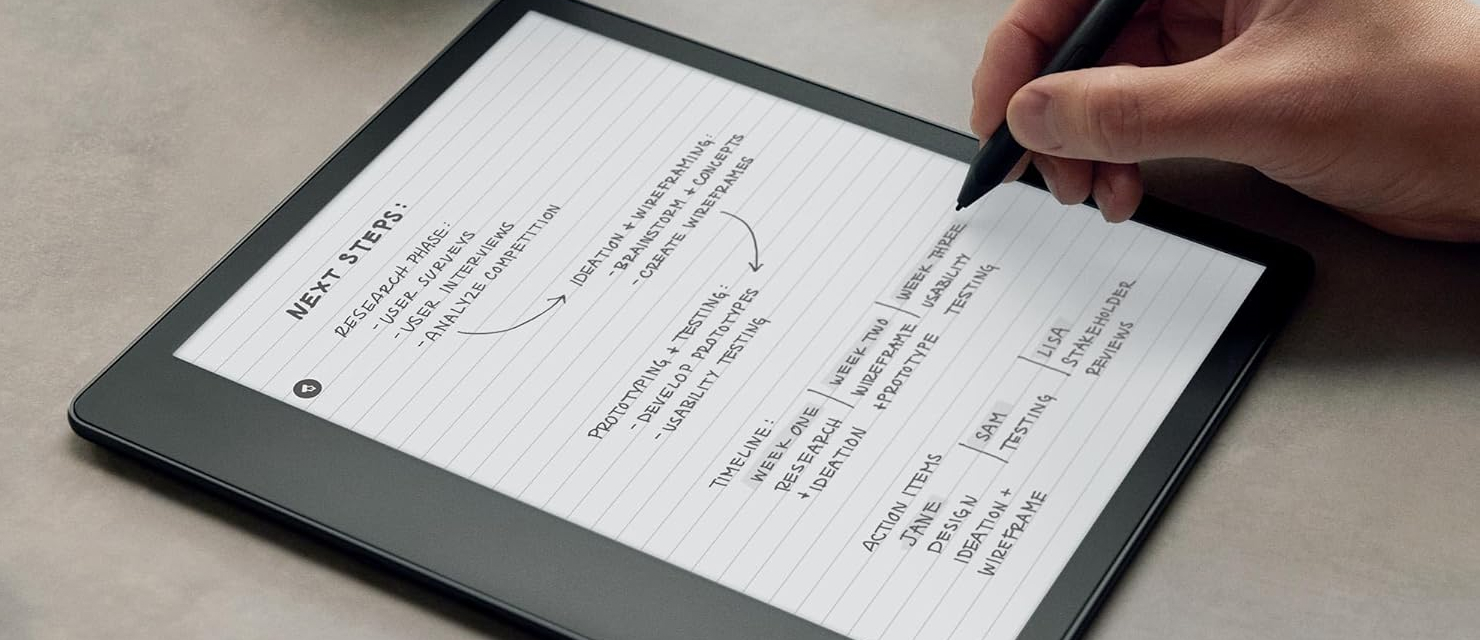 NEXT STEPS:
RESEARCH PHASE:
- USER SURVEYS
- USER INTERVIEWS
- ANALYZE COMPETITION
IDEATION + WIREFRAMING:
- BRAINSTORM + CONCEPTS
- CREATE WIREFRAMES
PROTOTYPING + TESTING:
- DEVELOP PROTOTYPES
- USABILITY TESTING
TIMELINE:
WEEK ONE
RESEARCH
+ IDEATION
WEEK TWO
WIREFRAME
+PROTOTYPE
WEEK THREE
USABILITY
TESTING
ACTION ITEMS
JANE
DESIGN
IDEATION +
WIREFRAME
SAM
TESTING
LISA
STAKEHOLDER
REVIEWS